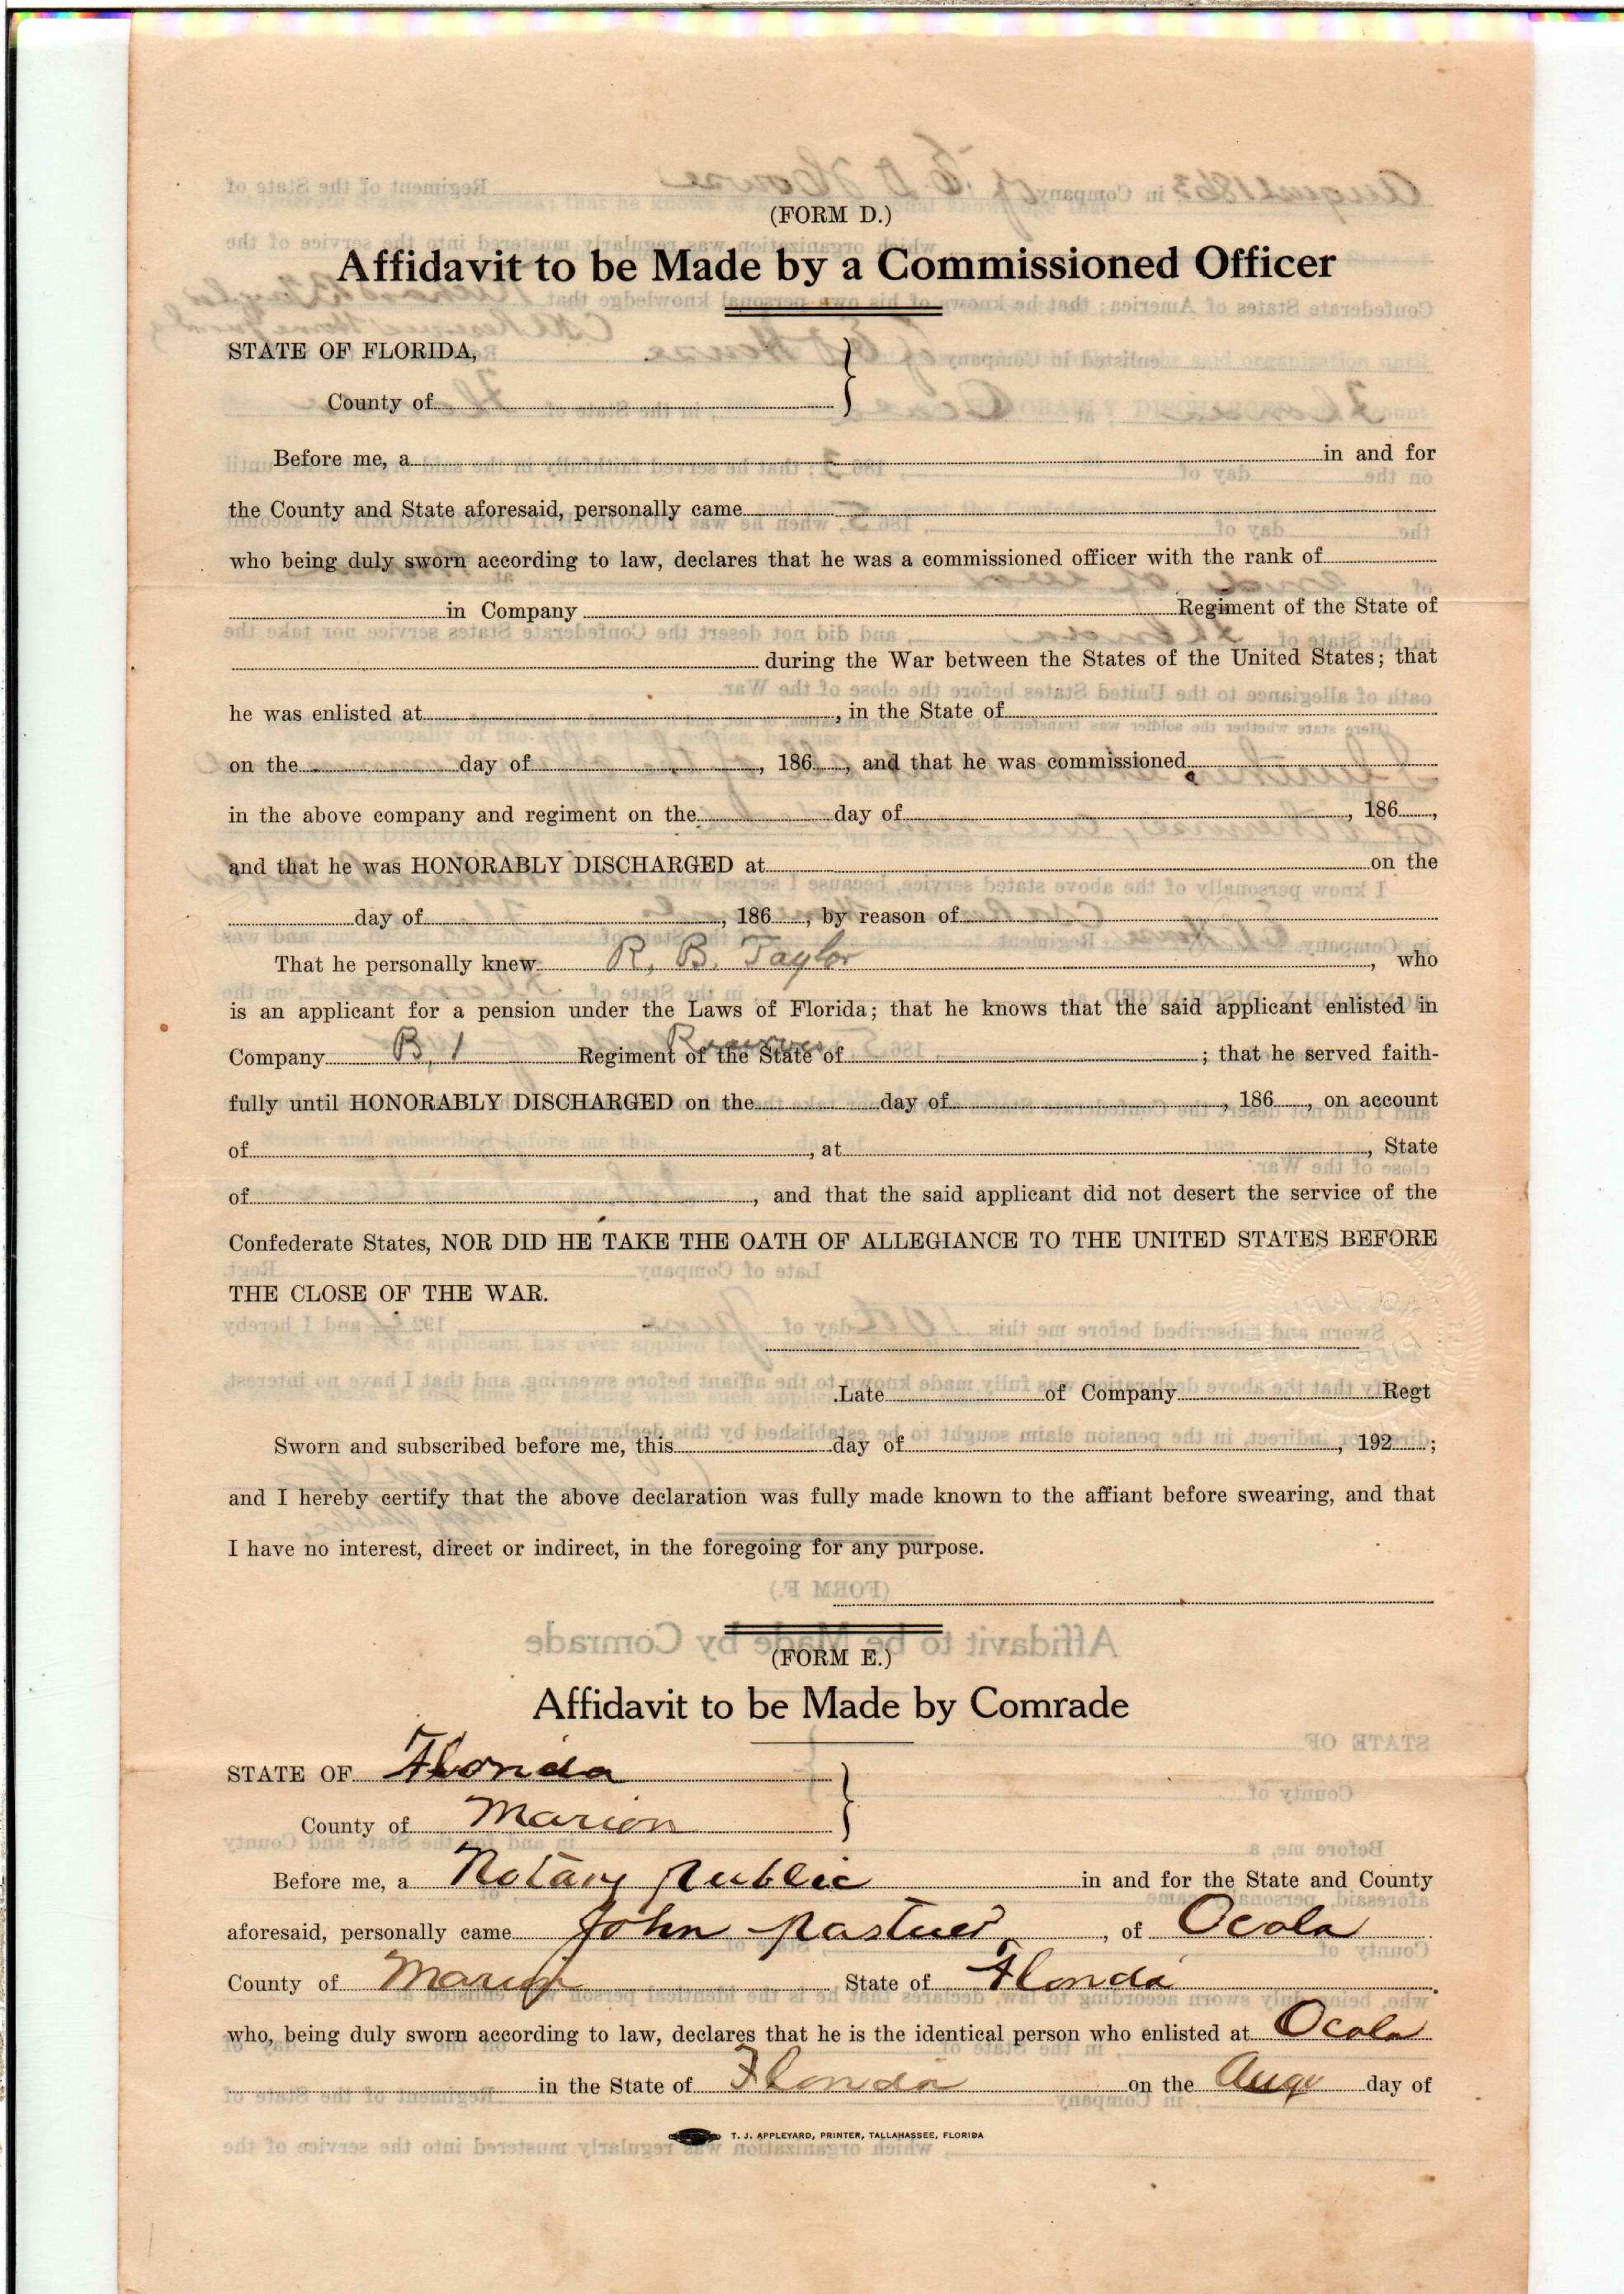 (FORM D.)
Affidavit to be Made by a Commissioned Officer
STATE OF FLORIDA,
County of
Before me, a in and for
the County and State aforesaid, personally came
who being duly sworn according to law, declares that he was a commissioned officer with the rank of
in Company Regiment of the State of
during the War between the States of the United States; that
he was enlisted at , in the State of
on the day of , 186 , and that he was commissioned
in the above company and regiment on the day of , 186 ,
and that he was HONORABLY DISCHARGED at on the
day of , 186 , by reason of
That he personally knew R. B. Taylor , who
is an applicant for a pension under the Laws of Florida; that he knows that the said applicant enlisted in
Company B, 1 Regiment of the State of Reserves ; that he served faith-
fully until HONORABLY DISCHARGED on the day of , 186 , on account
of , at , State
of , and that the said applicant did not desert the service of the
Confederate States, NOR DID HE TAKE THE OATH OF ALLEGIANCE TO THE UNITED STATES BEFORE
THE CLOSE OF THE WAR.
Late of Company Regt
Sworn and subscribed before me, this day of , 192 ;
and I hereby certify that the above declaration was fully made known to the affiant before swearing, and that
I have no interest, direct or indirect, in the foregoing for any purpose.
(FORM E.)
Affidavit to be Made by Comrade
STATE OF Florida
County of Marion
Before me, a Notary Public in and for the State and County
aforesaid, personally came John , of Ocala
County of Marion State of Florida
who, being duly sworn according to law, declares that he is the identical person who enlisted at Ocala
in the State of Florida on the Augu day of
T. J. APPLEYARD, PRINTER, TALLAHASSEE, FLORIDA